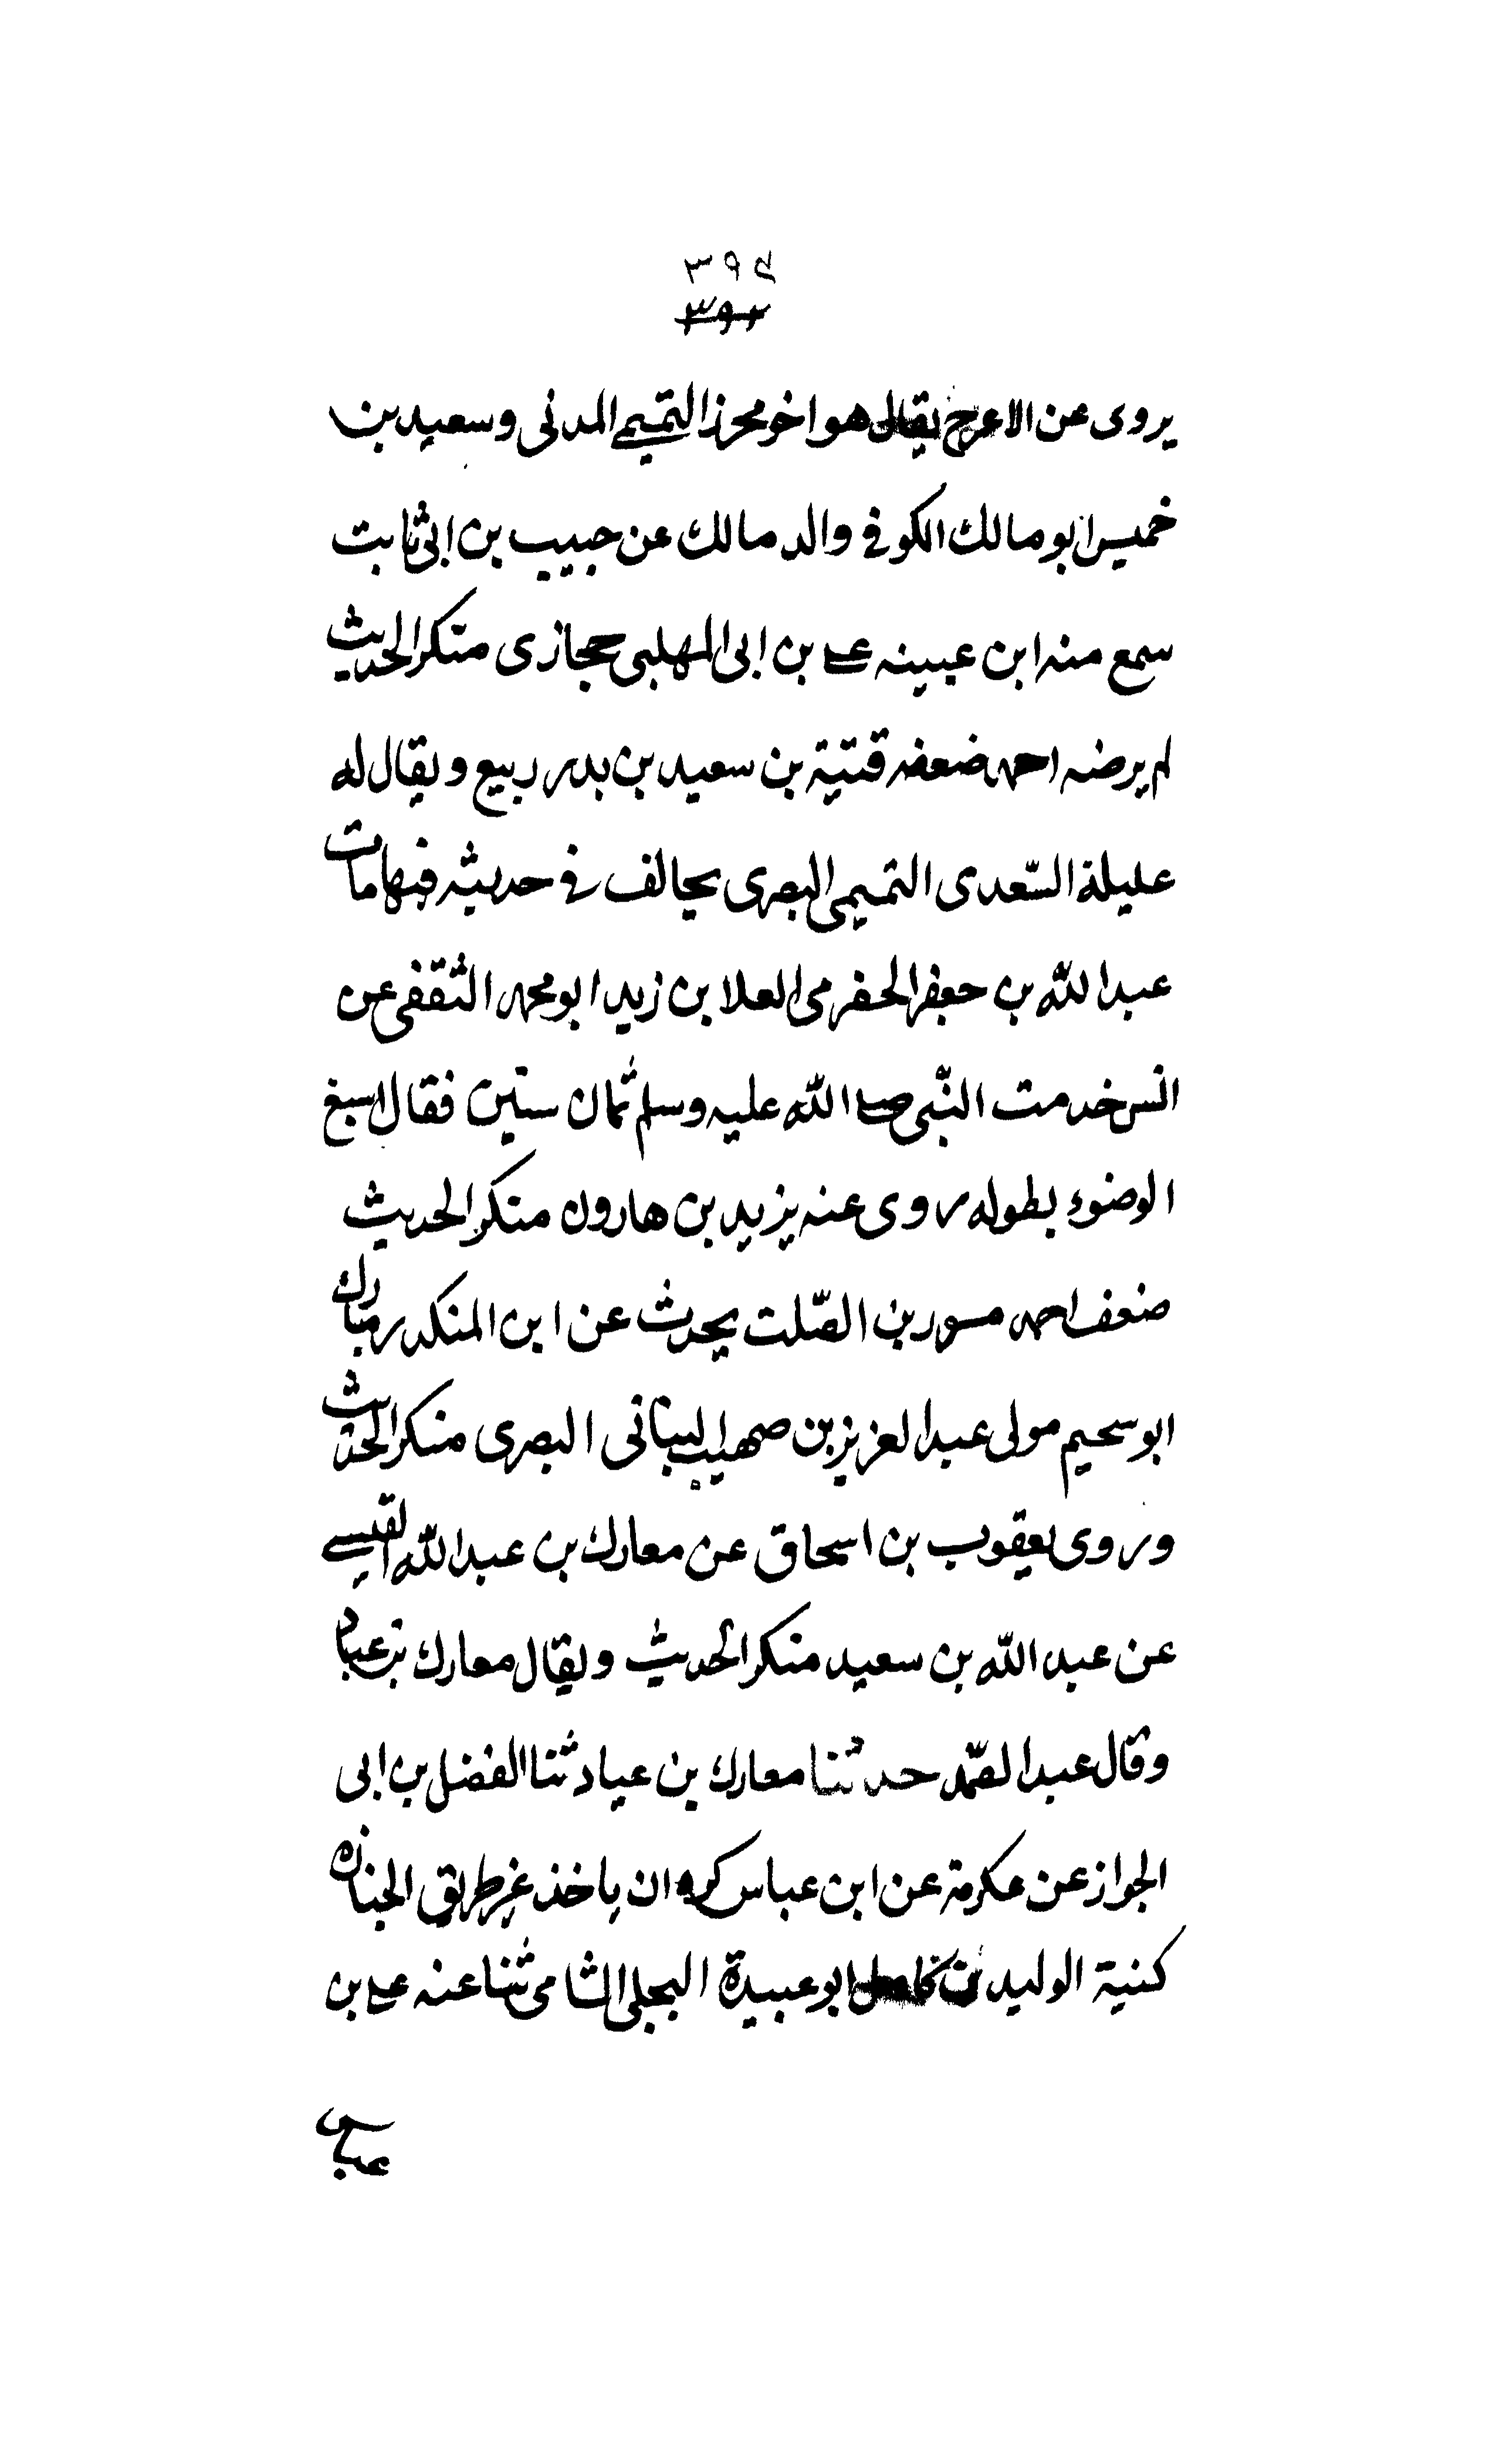 ٣٩٤
٣٩٢
يروى عن الاعرج يقال هو اخو محرز التميمى المدنى وسعيد بن
خميس ابو مالك الكوفى والد مالك عن حبيب بن ابى ثابت
سمع منه ابن عيينه على بن ابى المهلبى حجازى منكر الحديث
لم يرضه احمد ضعفه قتيبة بن سعيد بن بدر ربيع ويقال له
عليلة السّعدى التميمى البصرى يخالف فى حديثه فيها مات
عبد الله بن جعفر الحفرمى العلا بن زيد ابو محمد الثقفى عن
انس خدمت النّبى صلى الله عليه وسلم ثمان سنين فقال اسبغ
الوضوء بطوله روى عنه يزيد بن هارون منكر الحديث
ضعف احمد مسور بن الصّلت يحدث عن ابن المنكدر مبارك
ابو سحيم مولى عبد العزيز بن صهيب البنانى البصرى منكر الحديث
وروى يعقوب بن اسحاق عن معارك بن عبد الله القيسى
عن عبد الله بن سعيد منكر الحديث ويقال معارك بن عباد
وقال عبد الصّمد حدثنا معارك بن عباد ثنا الفضل بن ابى
الجواز عن عكرمة عن ابن عباس كره ان ياخذ غير طريق الجنازه
كنية الوليد بن كامل ابو عبيدة البجلى الشامى ثنا عنه على بن
عباس